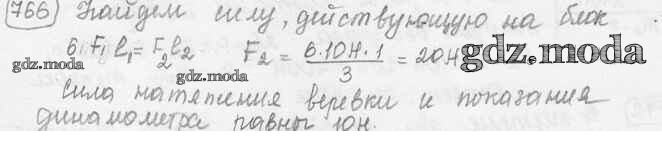 766 Найдем силу, действующую на блок
6 F₁ l₁ = F₂ l₂ F₂ = 6·10Н·1 / 3 = 20Н
gdz.moda gdz.moda gdz.moda
Сила натяжения веревки и показания
динамометра равны 10Н.